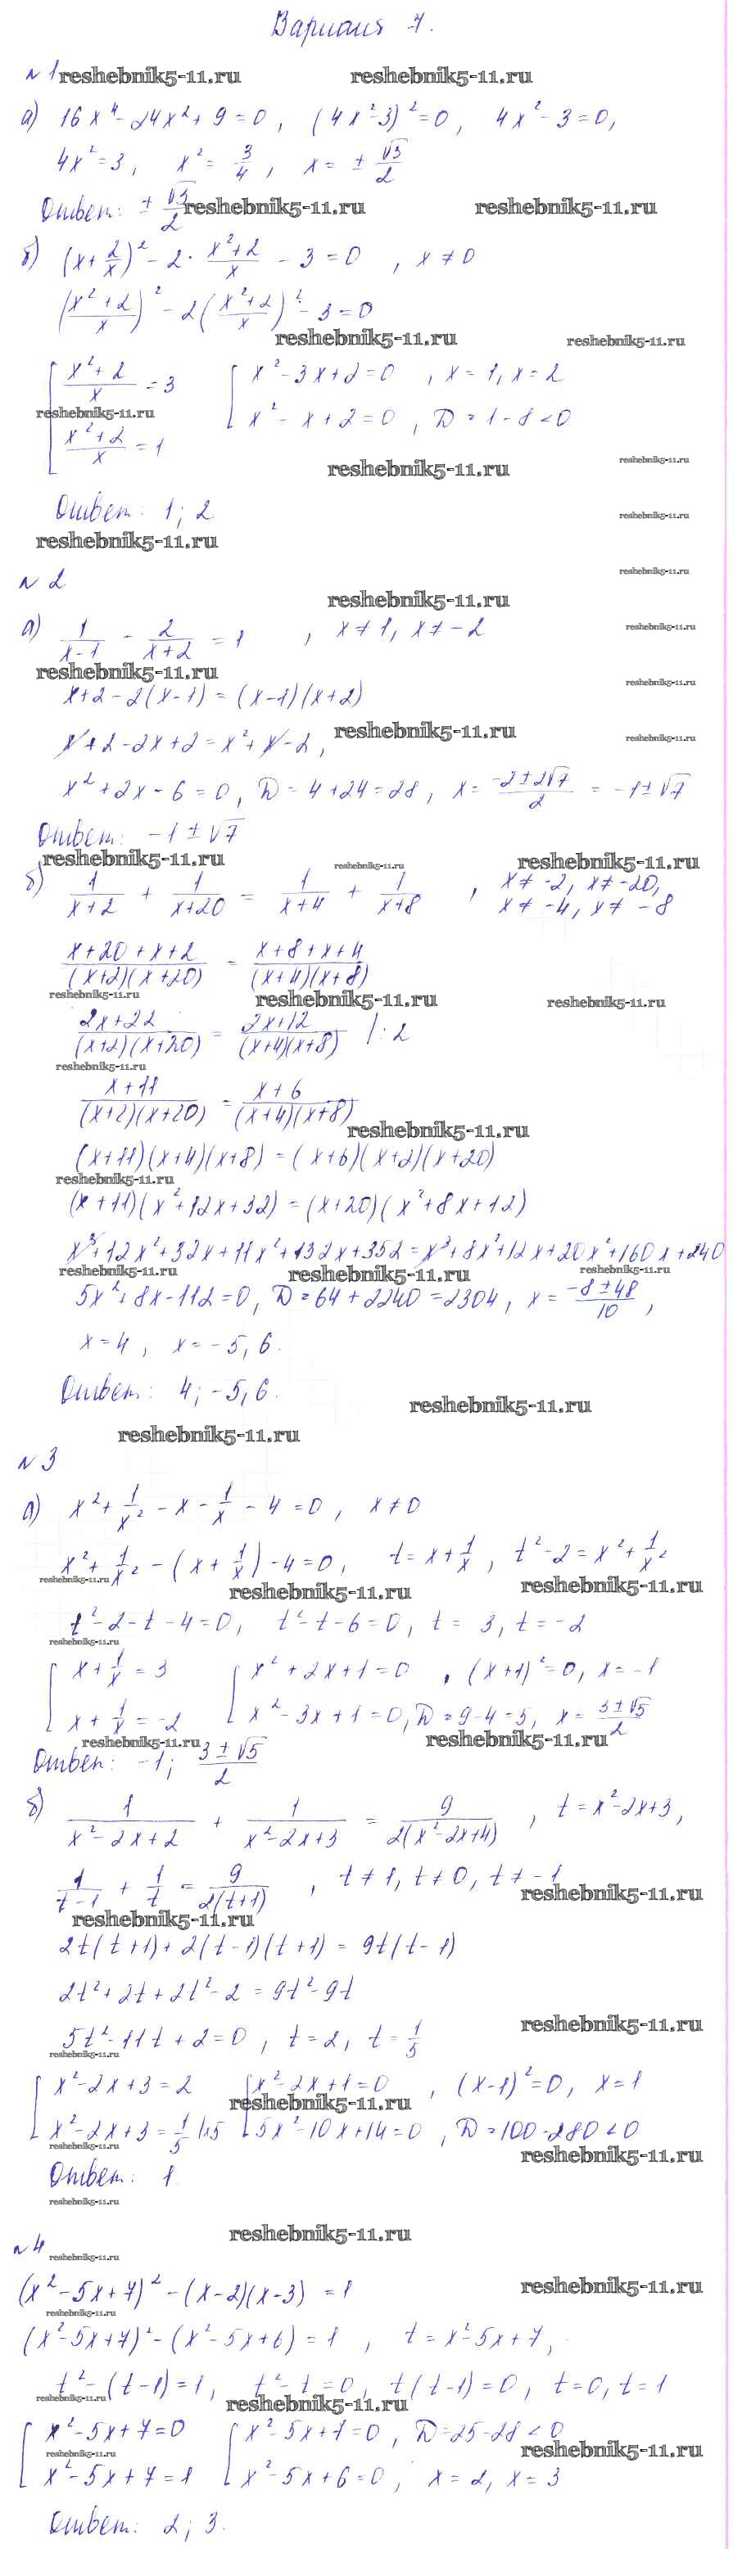 Вариант 7.
№1 reshebnik5-11.ru reshebnik5-11.ru
а) 16x⁴ - 24x² + 9 = 0, (4x² - 3)² = 0, 4x² - 3 = 0,
4x² = 3, x² = 3/4, x = ± √3/2
Ответ: ± √3/2 reshebnik5-11.ru reshebnik5-11.ru
б) (x + 2/x)² - 2 · (x²+2)/x - 3 = 0, x ≠ 0
((x²+2)/x)² - 2((x²+2)/x)² - 3 = 0
reshebnik5-11.ru reshebnik5-11.ru
[ (x²+2)/x = 3 [ x² - 3x + 2 = 0, x = 1, x = 2
reshebnik5-11.ru
(x²+2)/x = 1 x² - x + 2 = 0, D = 1 - 8 < 0
reshebnik5-11.ru reshebnik5-11.ru
Ответ: 1; 2 reshebnik5-11.ru
reshebnik5-11.ru
№2 reshebnik5-11.ru
reshebnik5-11.ru
а) 1/(x-1) - 2/(x+2) = 1, x ≠ 1, x ≠ -2 reshebnik5-11.ru
reshebnik5-11.ru reshebnik5-11.ru
x+2-2(x-1) = (x-1)(x+2)
x+2-2x+2 = x²+x-2, reshebnik5-11.ru reshebnik5-11.ru
x²+2x-6 = 0, D = 4+24 = 28, x = (-2±2√7)/2 = -1±√7
Ответ: -1±√7
reshebnik5-11.ru reshebnik5-11.ru reshebnik5-11.ru
б) 1/(x+2) + 1/(x+20) = 1/(x+4) + 1/(x+8), x ≠ -2, x ≠ -20,
x ≠ -4, x ≠ -8
(x+20+x+2)/((x+2)(x+20)) = (x+8+x+4)/((x+4)(x+8))
reshebnik5-11.ru reshebnik5-11.ru reshebnik5-11.ru
(2x+22)/((x+2)(x+20)) = (2x+12)/((x+4)(x+8)) |:2
reshebnik5-11.ru
(x+11)/((x+2)(x+20)) = (x+6)/((x+4)(x+8))
reshebnik5-11.ru
(x+11)(x+4)(x+8) = (x+6)(x+2)(x+20)
reshebnik5-11.ru
(x+11)(x²+12x+32) = (x+20)(x²+8x+12)
x³+12x²+32x+11x²+132x+352 = x³+8x²+12x+20x²+160x+240
reshebnik5-11.ru reshebnik5-11.ru reshebnik5-11.ru
5x²+8x-112 = 0, D = 64+2240 = 2304, x = (-8±48)/10,
x = 4, x = -5,6.
Ответ: 4; -5,6.
reshebnik5-11.ru
reshebnik5-11.ru
№3
а) x² + 1/x² - x - 1/x - 4 = 0, x ≠ 0
x² + 1/x² - (x + 1/x) - 4 = 0, t = x + 1/x, t² - 2 = x² + 1/x²
reshebnik5-11.ru reshebnik5-11.ru reshebnik5-11.ru
t² - 2 - t - 4 = 0, t² - t - 6 = 0, t = 3, t = -2
reshebnik5-11.ru
[ x + 1/x = 3 [ x² + 2x + 1 = 0, (x+1)² = 0, x = -1
x + 1/x = -2 x² - 3x + 1 = 0, D = 9-4 = 5, x = (3±√5)/2
reshebnik5-11.ru reshebnik5-11.ru
Ответ: -1; (3±√5)/2
б) 1/(x²-2x+2) + 1/(x²-2x+3) = 9/(2(x²-2x+4)), t = x²-2x+3,
1/(t-1) + 1/t = 9/(2(t+1)), t ≠ 1, t ≠ 0, t ≠ -1
reshebnik5-11.ru
reshebnik5-11.ru
2t(t+1) + 2(t-1)(t+1) = 9t(t-1)
2t²+2t+2t²-2 = 9t²-9t
reshebnik5-11.ru
5t²-11t+2 = 0, t = 2, t = 1/5
reshebnik5-11.ru
[ x²-2x+3 = 2 [ x²-2x+1 = 0, (x-1)² = 0, x = 1
reshebnik5-11.ru
x²-2x+3 = 1/5 |·5 5x²-10x+14 = 0, D = 100-280 < 0
reshebnik5-11.ru reshebnik5-11.ru
Ответ: 1
reshebnik5-11.ru
reshebnik5-11.ru
№4
reshebnik5-11.ru
(x²-5x+7)² - (x-2)(x-3) = 1 reshebnik5-11.ru
reshebnik5-11.ru
(x²-5x+7)² - (x²-5x+6) = 1, t = x²-5x+7,
t² - (t-1) = 1, t² - t = 0, t(t-1) = 0, t = 0, t = 1
reshebnik5-11.ru reshebnik5-11.ru
[ x²-5x+7 = 0 [ x²-5x+7 = 0, D = 25-28 < 0
reshebnik5-11.ru reshebnik5-11.ru
x²-5x+7 = 1 x²-5x+6 = 0, x = 2, x = 3
Ответ: 2; 3.